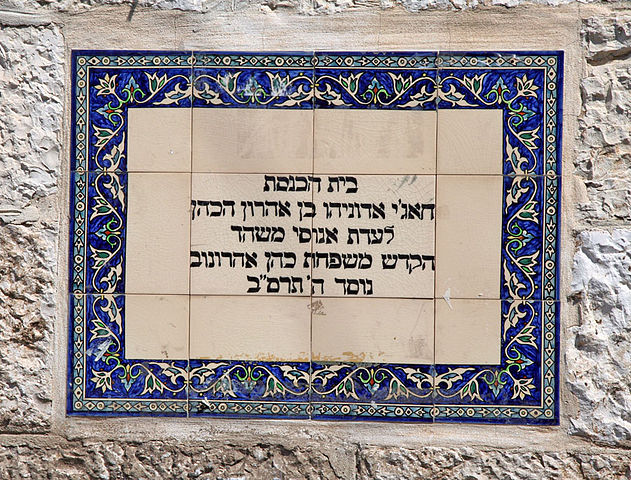 בית הכנסת
חאג׳י אדוניהו בן אהרון הכהן
לעדת אנוסי משהד
הקדש משפחת כהן אהרונוב
נוסד ה׳תרס״ב